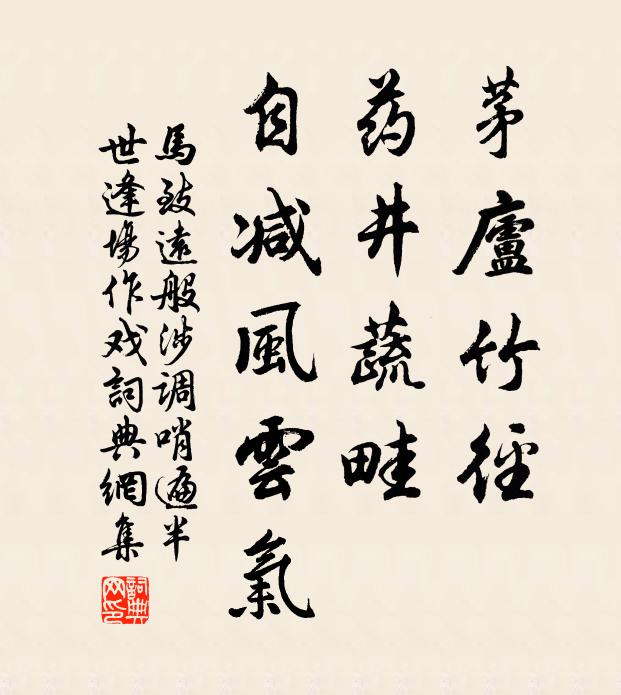 茅廬竹徑
药井蔬畦
自减風雲氣
馬致遠般涉调哨遍半
世逢場作戏詞典網集
詞典网印